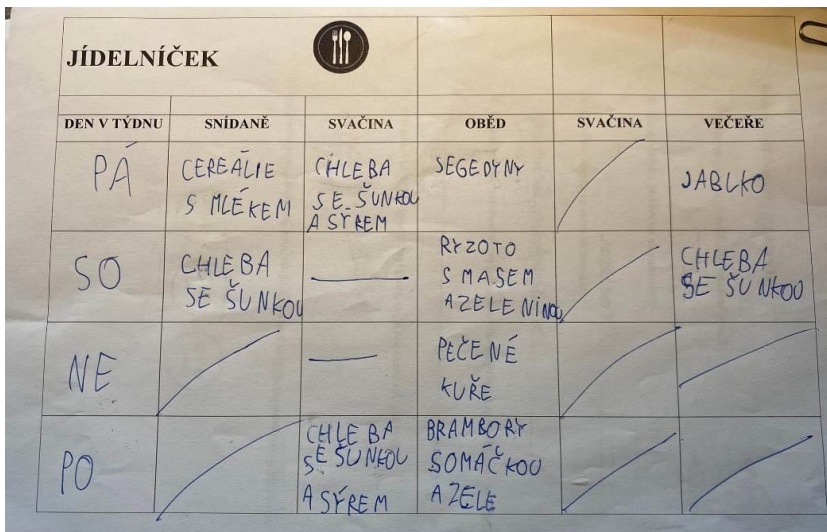 JÍDELNÍČEK
DEN V TÝDNU SNÍDANĚ SVAČINA OBĚD SVAČINA VEČEŘE
PÁ
CEREÁLIE
S MLÉKEM
CHLEBA
SE ŠUNKOU
A SÝREM
SEGEDYNY
JABLKO
SO
CHLEBA
SE ŠUNKOU
RYZOTO
S MASEM
A ZELENINOU
CHLEBA
SE ŠUNKOU
NE
PEČENÉ
KUŘE
PO
CHLEBA
SE ŠUNKOU
S.
A SÝREM
BRAMBORY
SOMÁČKOU
A ZELE